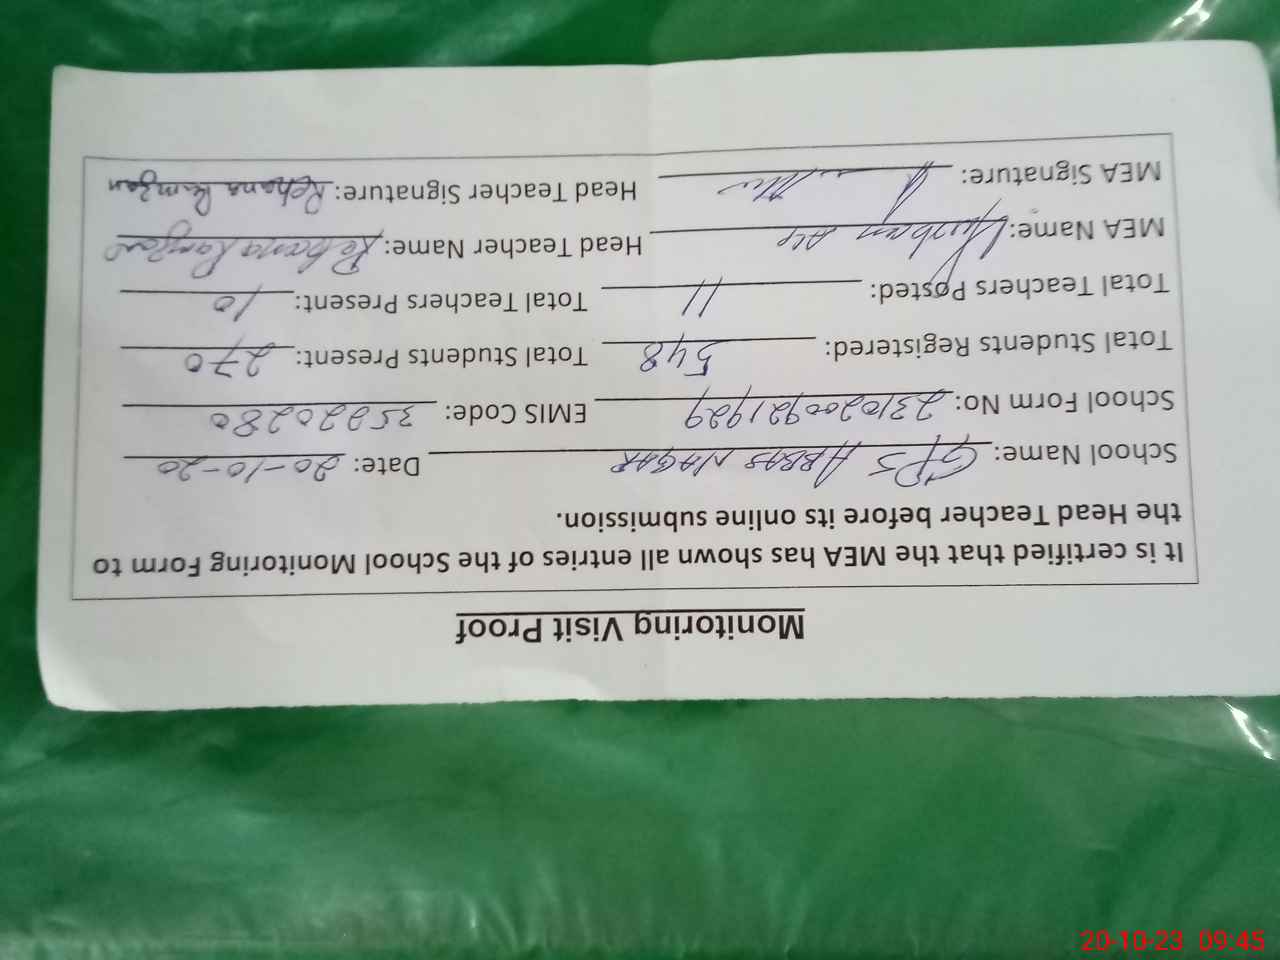 Monitoring Visit Proof
It is certified that the MEA has shown all entries of the School Monitoring Form to
the Head Teacher before its online submission.
School Name: GPS ABBAS NAGAR Date: 20-10-20
School Form No: 2310200921929 EMIS Code: 35220280
Total Students Registered: 548 Total Students Present: 270
Total Teachers Posted: 11 Total Teachers Present: 10
MEA Name: Head Teacher Name: Rehana Ramzan
MEA Signature: Head Teacher Signature: Rehana Ramzan
20-10-23 09:45